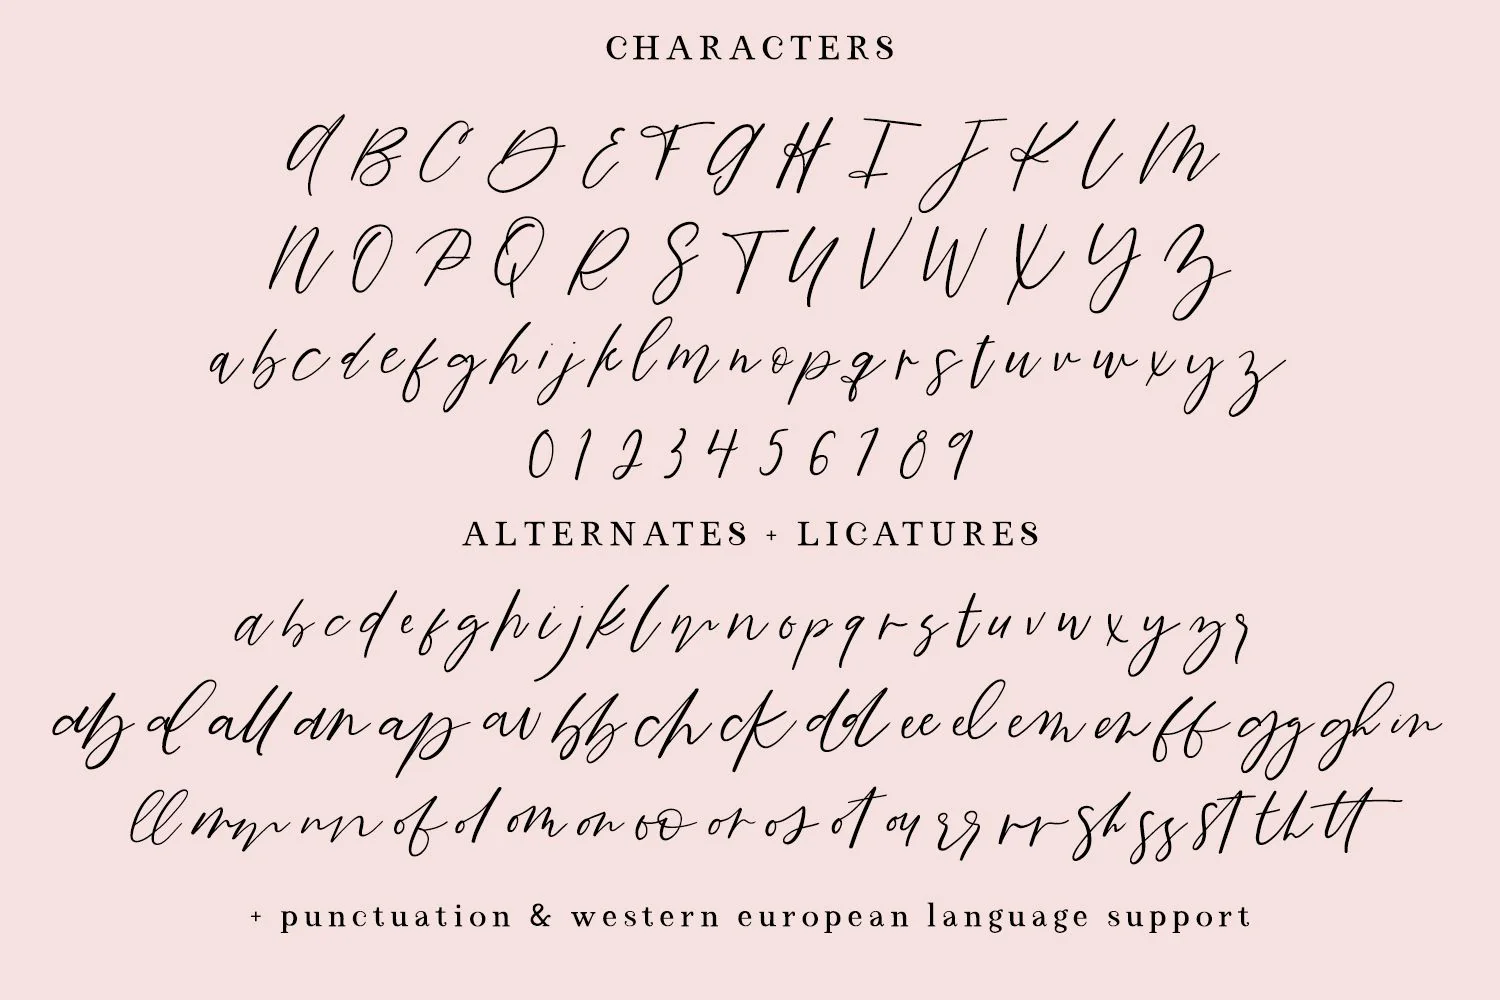 CHARACTERS
A B C D E F G H I J K L M
N O P Q R S T U V W X Y Z
a b c d e f g h i j k l m n o p q r s t u v w x y z
0 1 2 3 4 5 6 7 8 9
ALTERNATES + LIGATURES
a b c d e f g h i j k l m n o p q r s t u v w x y z r
ab al all an ap av bb ch ck dd ee el em en ff gg gh in
ll mm nn of ol om on oo or os ot ou rr rr sh ss st th tt
+ punctuation & western european language support